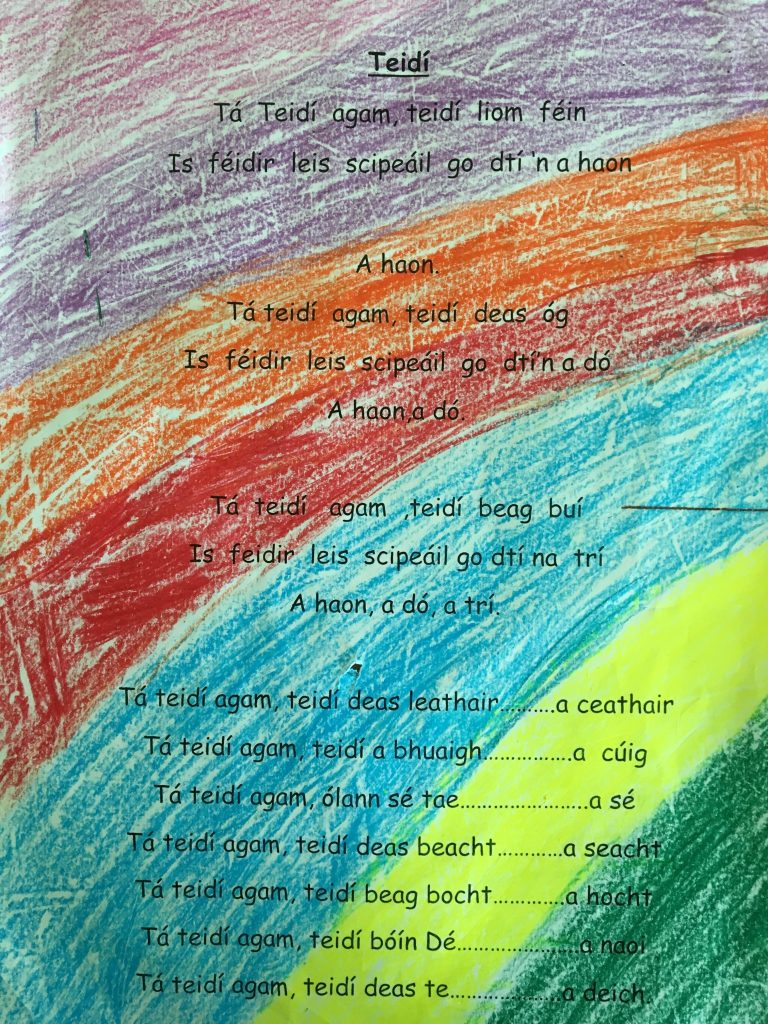 Teidí
Tá Teidí agam, teidí liom féin
Is féidir leis scipeáil go dtí 'n a haon
A haon.
Tá teidí agam, teidí deas óg
Is féidir leis scipeáil go dtí'n a dó
A haon,a dó.
Tá teidí agam ,teidí beag buí
Is feidir leis scipeáil go dtí na trí
A haon, a dó, a trí.
Tá teidí agam, teidí deas leathair..........a ceathair
Tá teidí agam, teidí a bhuaigh................a cúig
Tá teidí agam, ólann sé tae.......................a sé
Tá teidí agam, teidí deas beacht............a seacht
Tá teidí agam, teidí beag bocht.............a hocht
Tá teidí agam, teidí bóín Dé......................a naoi
Tá teidí agam, teidí deas te....................a deich.